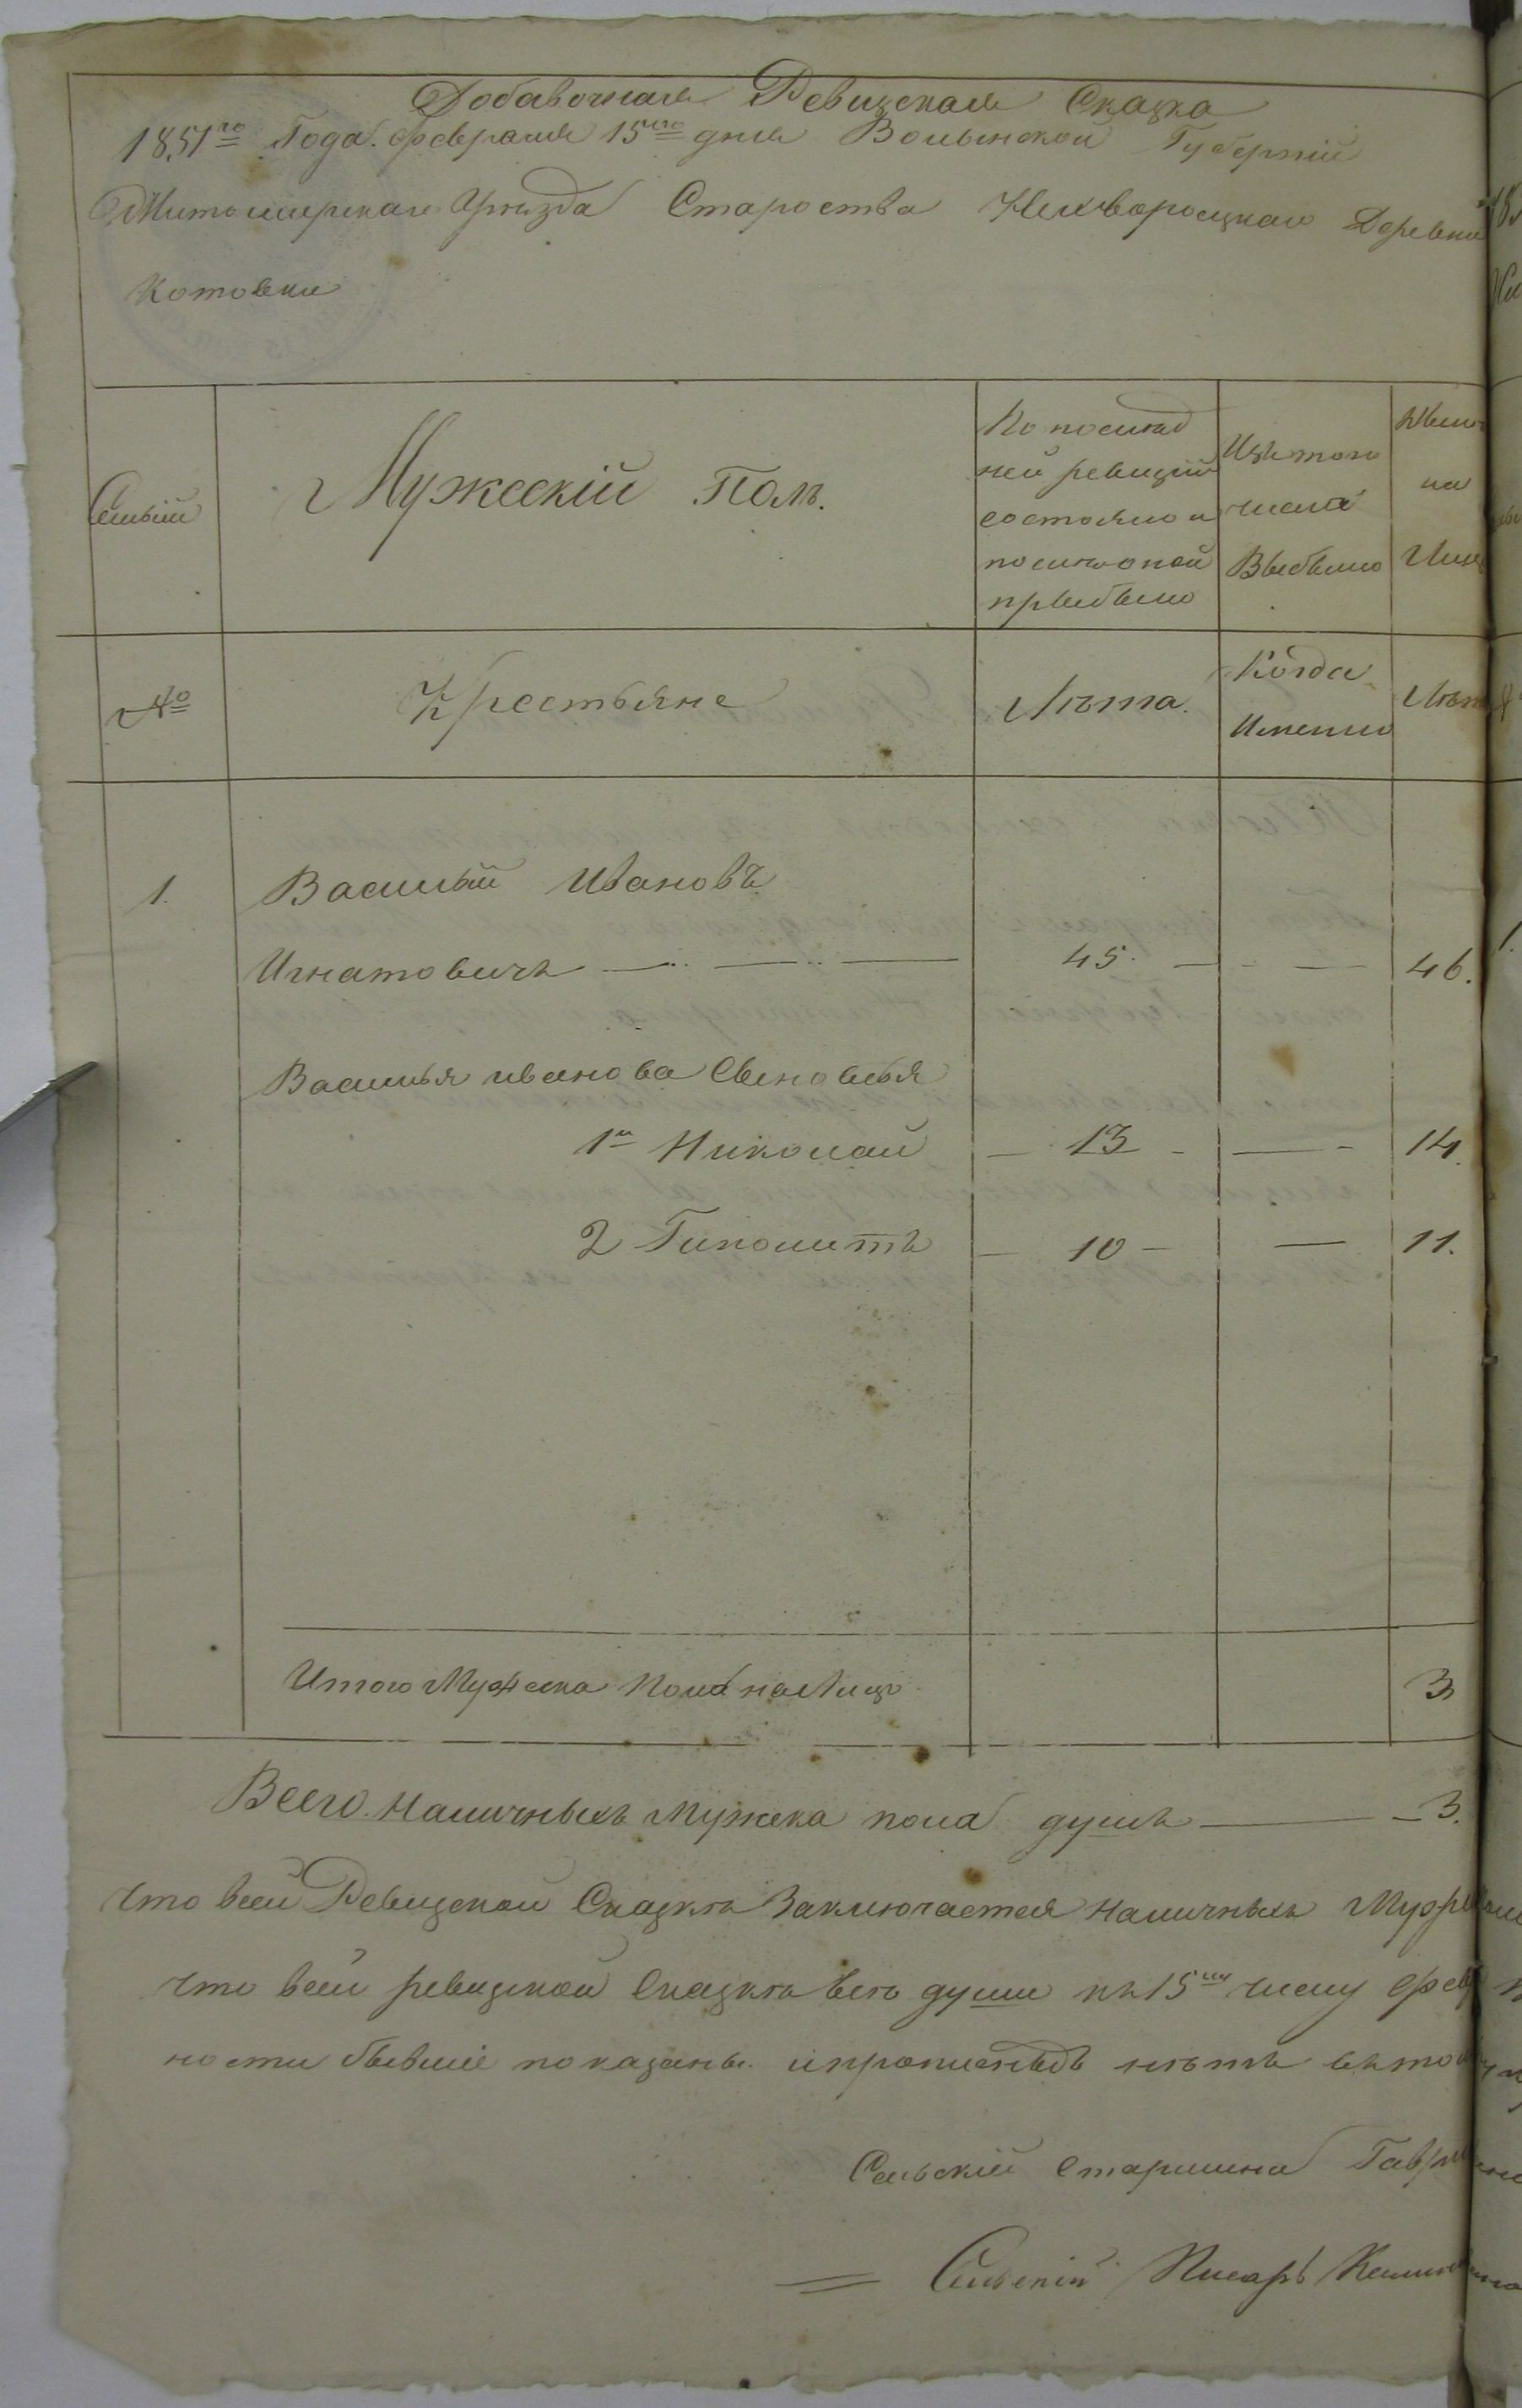 Добавочная Ревизская Сказка
1851го Года Февраля 15го дня Волынской Губерніи
Житомирскаго Уѣзда Староства Нехворощкаго Деревни
Котовки
Семьи
Мужескій Полъ.
По послѣд
ней ревизіи
состояло и
послѣ оной
прибыло
Изъ того
числа
Выбыло
Нынѣ
на
Лицо
№
Крестьяне
Лѣта.
Когда
Именно
Лѣта
1. Василій Ивановъ
Игнатовичъ 45. 46.
Василья иванова Сыновья
1й Николай 13 14.
2 Гиполитъ 10 11.
Итого Мужеска Пола на Лицо 3
Всего Наличныхъ Мужска пола душъ 3.
Что всей Ревизской Сказкѣ Заключается Наличныхъ
что всей ревизской Сказкѣ всѣ души къ 15му числу Фев
ности бывшіе показаны и прописныхъ нѣтъ въ том
Сельскій Старшина Гаври
Сельскій Писарь